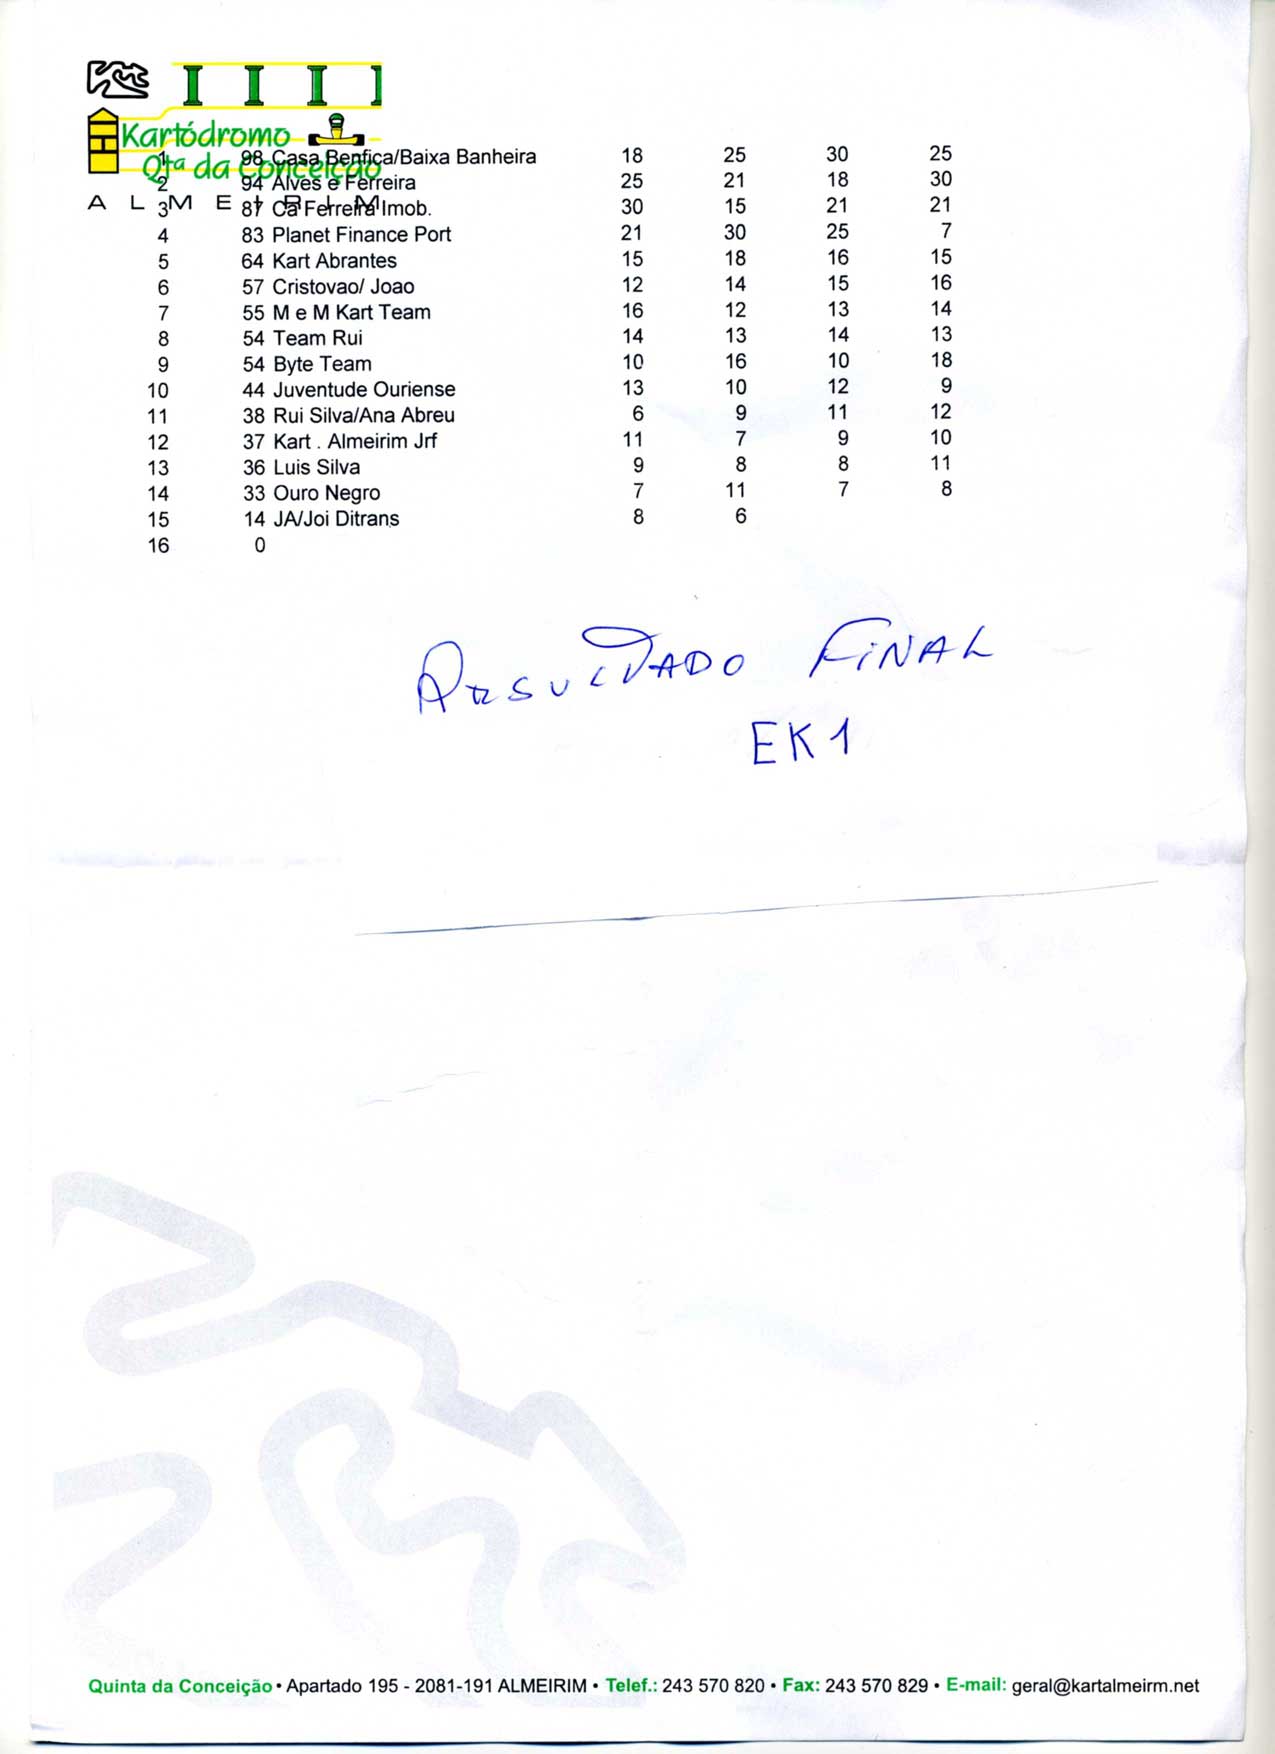 Kartódromo
Qtª da Conceição
A L M E I R I M
1 98 Casa Benfica/Baixa Banheira 18 25 30 25
2 94 Alves e Ferreira 25 21 18 30
3 87 Ca Ferreira Imob. 30 15 21 21
4 83 Planet Finance Port 21 30 25 7
5 64 Kart Abrantes 15 18 16 15
6 57 Cristovao/ Joao 12 14 15 16
7 55 M e M Kart Team 16 12 13 14
8 54 Team Rui 14 13 14 13
9 54 Byte Team 10 16 10 18
10 44 Juventude Ouriense 13 10 12 9
11 38 Rui Silva/Ana Abreu 6 9 11 12
12 37 Kart . Almeirim Jrf 11 7 9 10
13 36 Luis Silva 9 8 8 11
14 33 Ouro Negro 7 11 7 8
15 14 JA/Joi Ditrans 8 6
16 0
RESULTADO FINAL
EK1
Quinta da Conceição • Apartado 195 - 2081-191 ALMEIRIM • Telef.: 243 570 820 • Fax: 243 570 829 • E-mail: geral@kartalmeirm.net